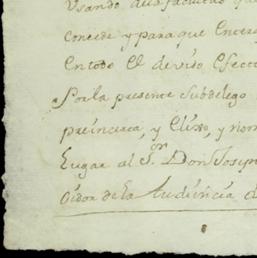 Usando de la facultad que
concede y para que Enter
En todo El devido Efecto
Por la presente Subdelego
preinserta, y Elixo, y nom
Lugar al S.or Don Joseph
Oidor de la Audiencia d